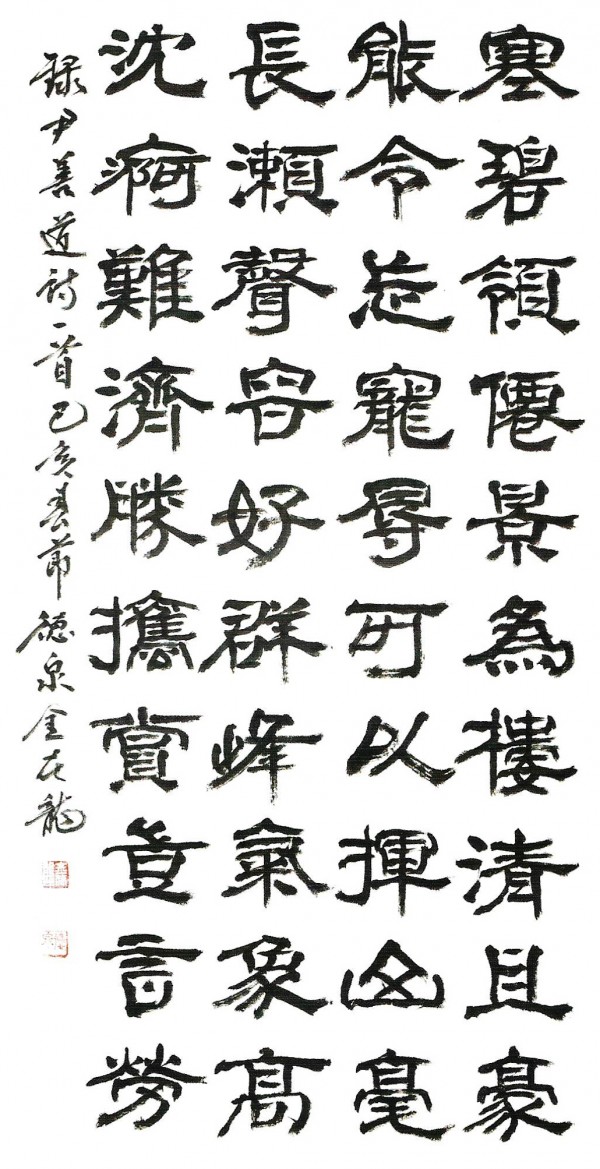 塞碧領僊景為樓清且豪
能令忘寵辱可以揮毫
長瀨聲容好群峰氣象高
沈痾難濟勝攜賞豈言勞
錄尹善道詩一首己亥春節德泉金在龍